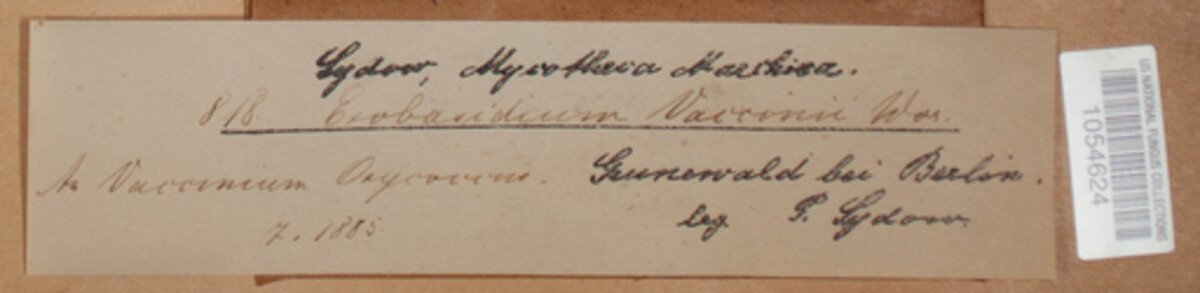 Sydow, Mycotheca Marchica.
818. Exobasidium Vaccinii Wor.
An Vaccinium Oxycoccus. Grunewald bei Berlin.
7. 1885 leg. P. Sydow.
US NATIONAL FUNGUS COLLECTIONS
1054624